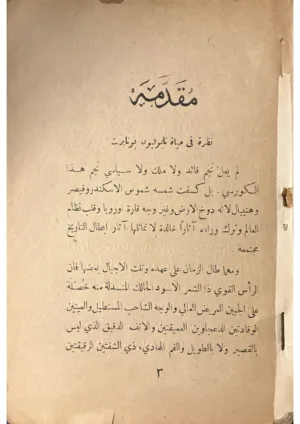 مقدمة
نظرة في حياة نابوليون بونابرت
لم يعل نجم قائد ولا ملك ولا سياسي نجم هذا
الكورسي. بل كسفت شمسه شموس الاسكندر وقيصر
وهنيبال لانه دوخ الارض وغير وجه قارة اوروبا وقلب نظام
العالم وترك وراءه آثاراً خالدة لا تماثلها آثار ابطال التاريخ
مجتمعة.
ومهما طال الزمان على عهده وتلت الاجيال بعضها فان
الرأس القوي ذا الشعر الاسود الحالك المنسدلة منه خصلة
على الجبين العريض العالي والوجه الشاحب المستطيل والعينين
الوقادتين الدعجاوين العميقتين والانف الدقيق الذي ليس
بالقصير ولا بالطويل والفم الهادي، ذي الشفتين الرقيقتين
٣